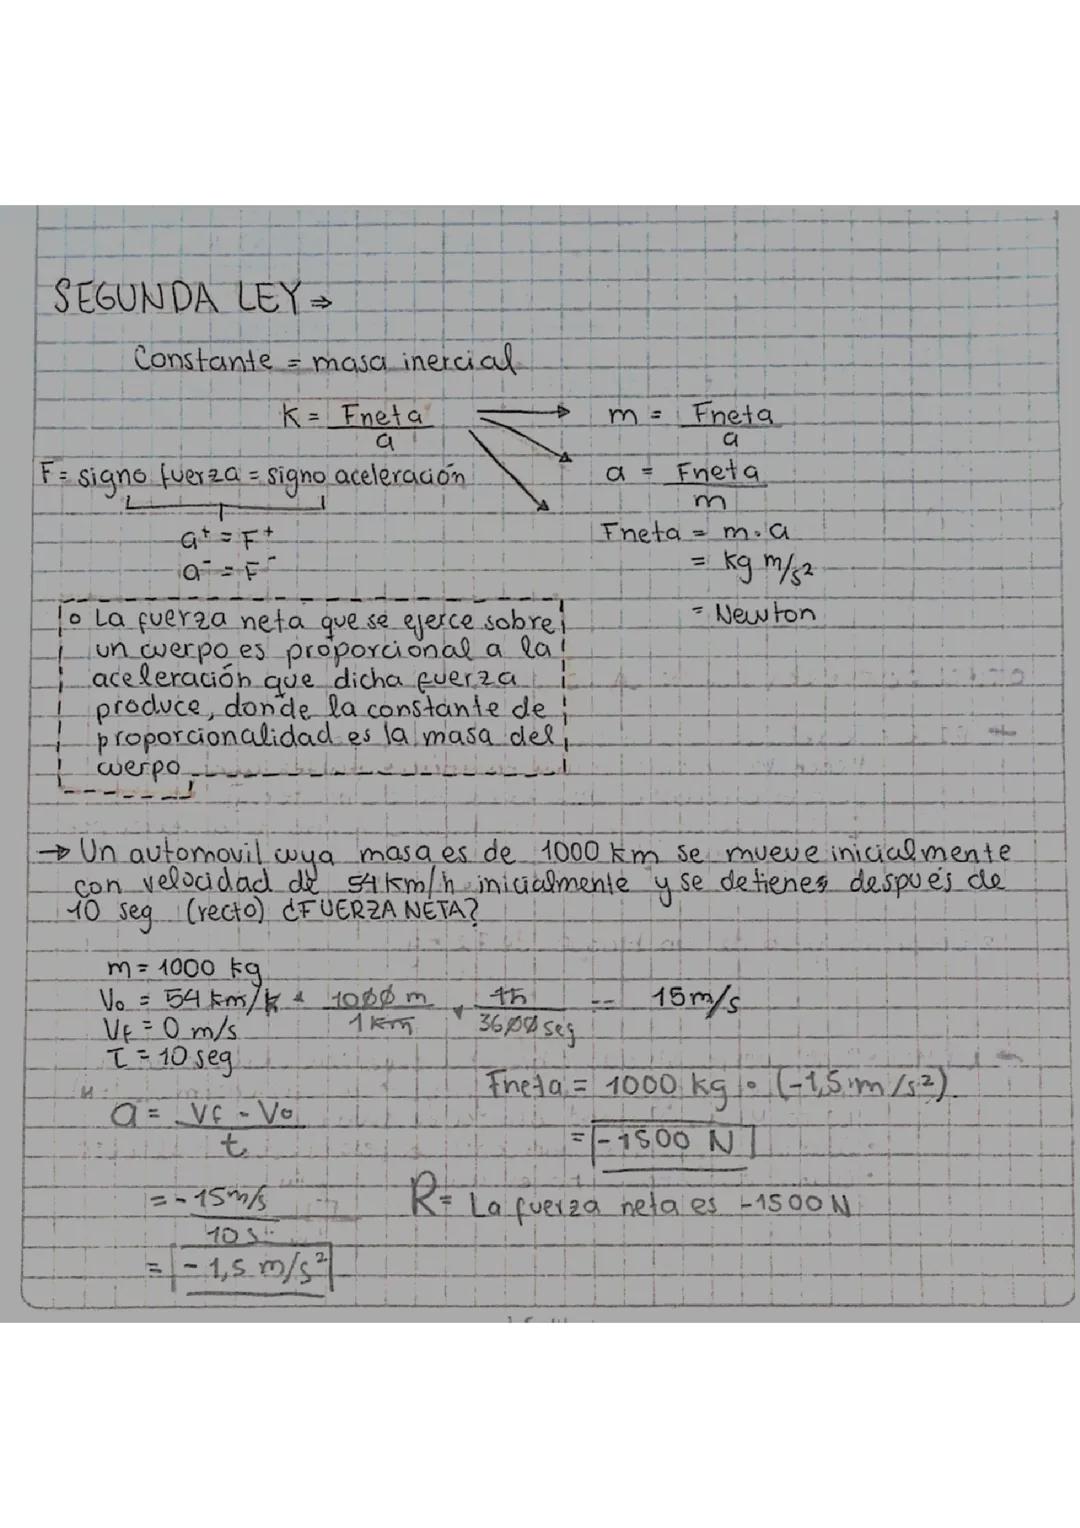 SEGUNDA LEY ⇒
Constante = masa inercial
K = Fneta / a
m = Fneta / a
F = signo fuerza = signo aceleración
a = Fneta / m
a⁺ = F⁺
Fneta = m · a
a⁻ = F⁻
= kg m/s²
= Newton
o La fuerza neta que se ejerce sobre
un cuerpo es proporcional a la
aceleración que dicha fuerza
produce, donde la constante de
proporcionalidad es la masa del
cuerpo
→ Un automovil cuya masa es de 1000 km se mueve inicialmente
con velocidad de 54 km/h inicialmente y se detienes después de
10 seg (recto) ¿FUERZA NETA?
m = 1000 kg
Vo = 54 km/h · 1000 m / 1 km · 1h / 3600 seg = 15 m/s
Vf = 0 m/s
T = 10 seg
Fneta = 1000 kg · (-1,5 m/s²)
a = Vf - Vo / t
= -1500 N
= -15 m/s / 10 s
R = La fuerza neta es -1500 N
= -1,5 m/s²